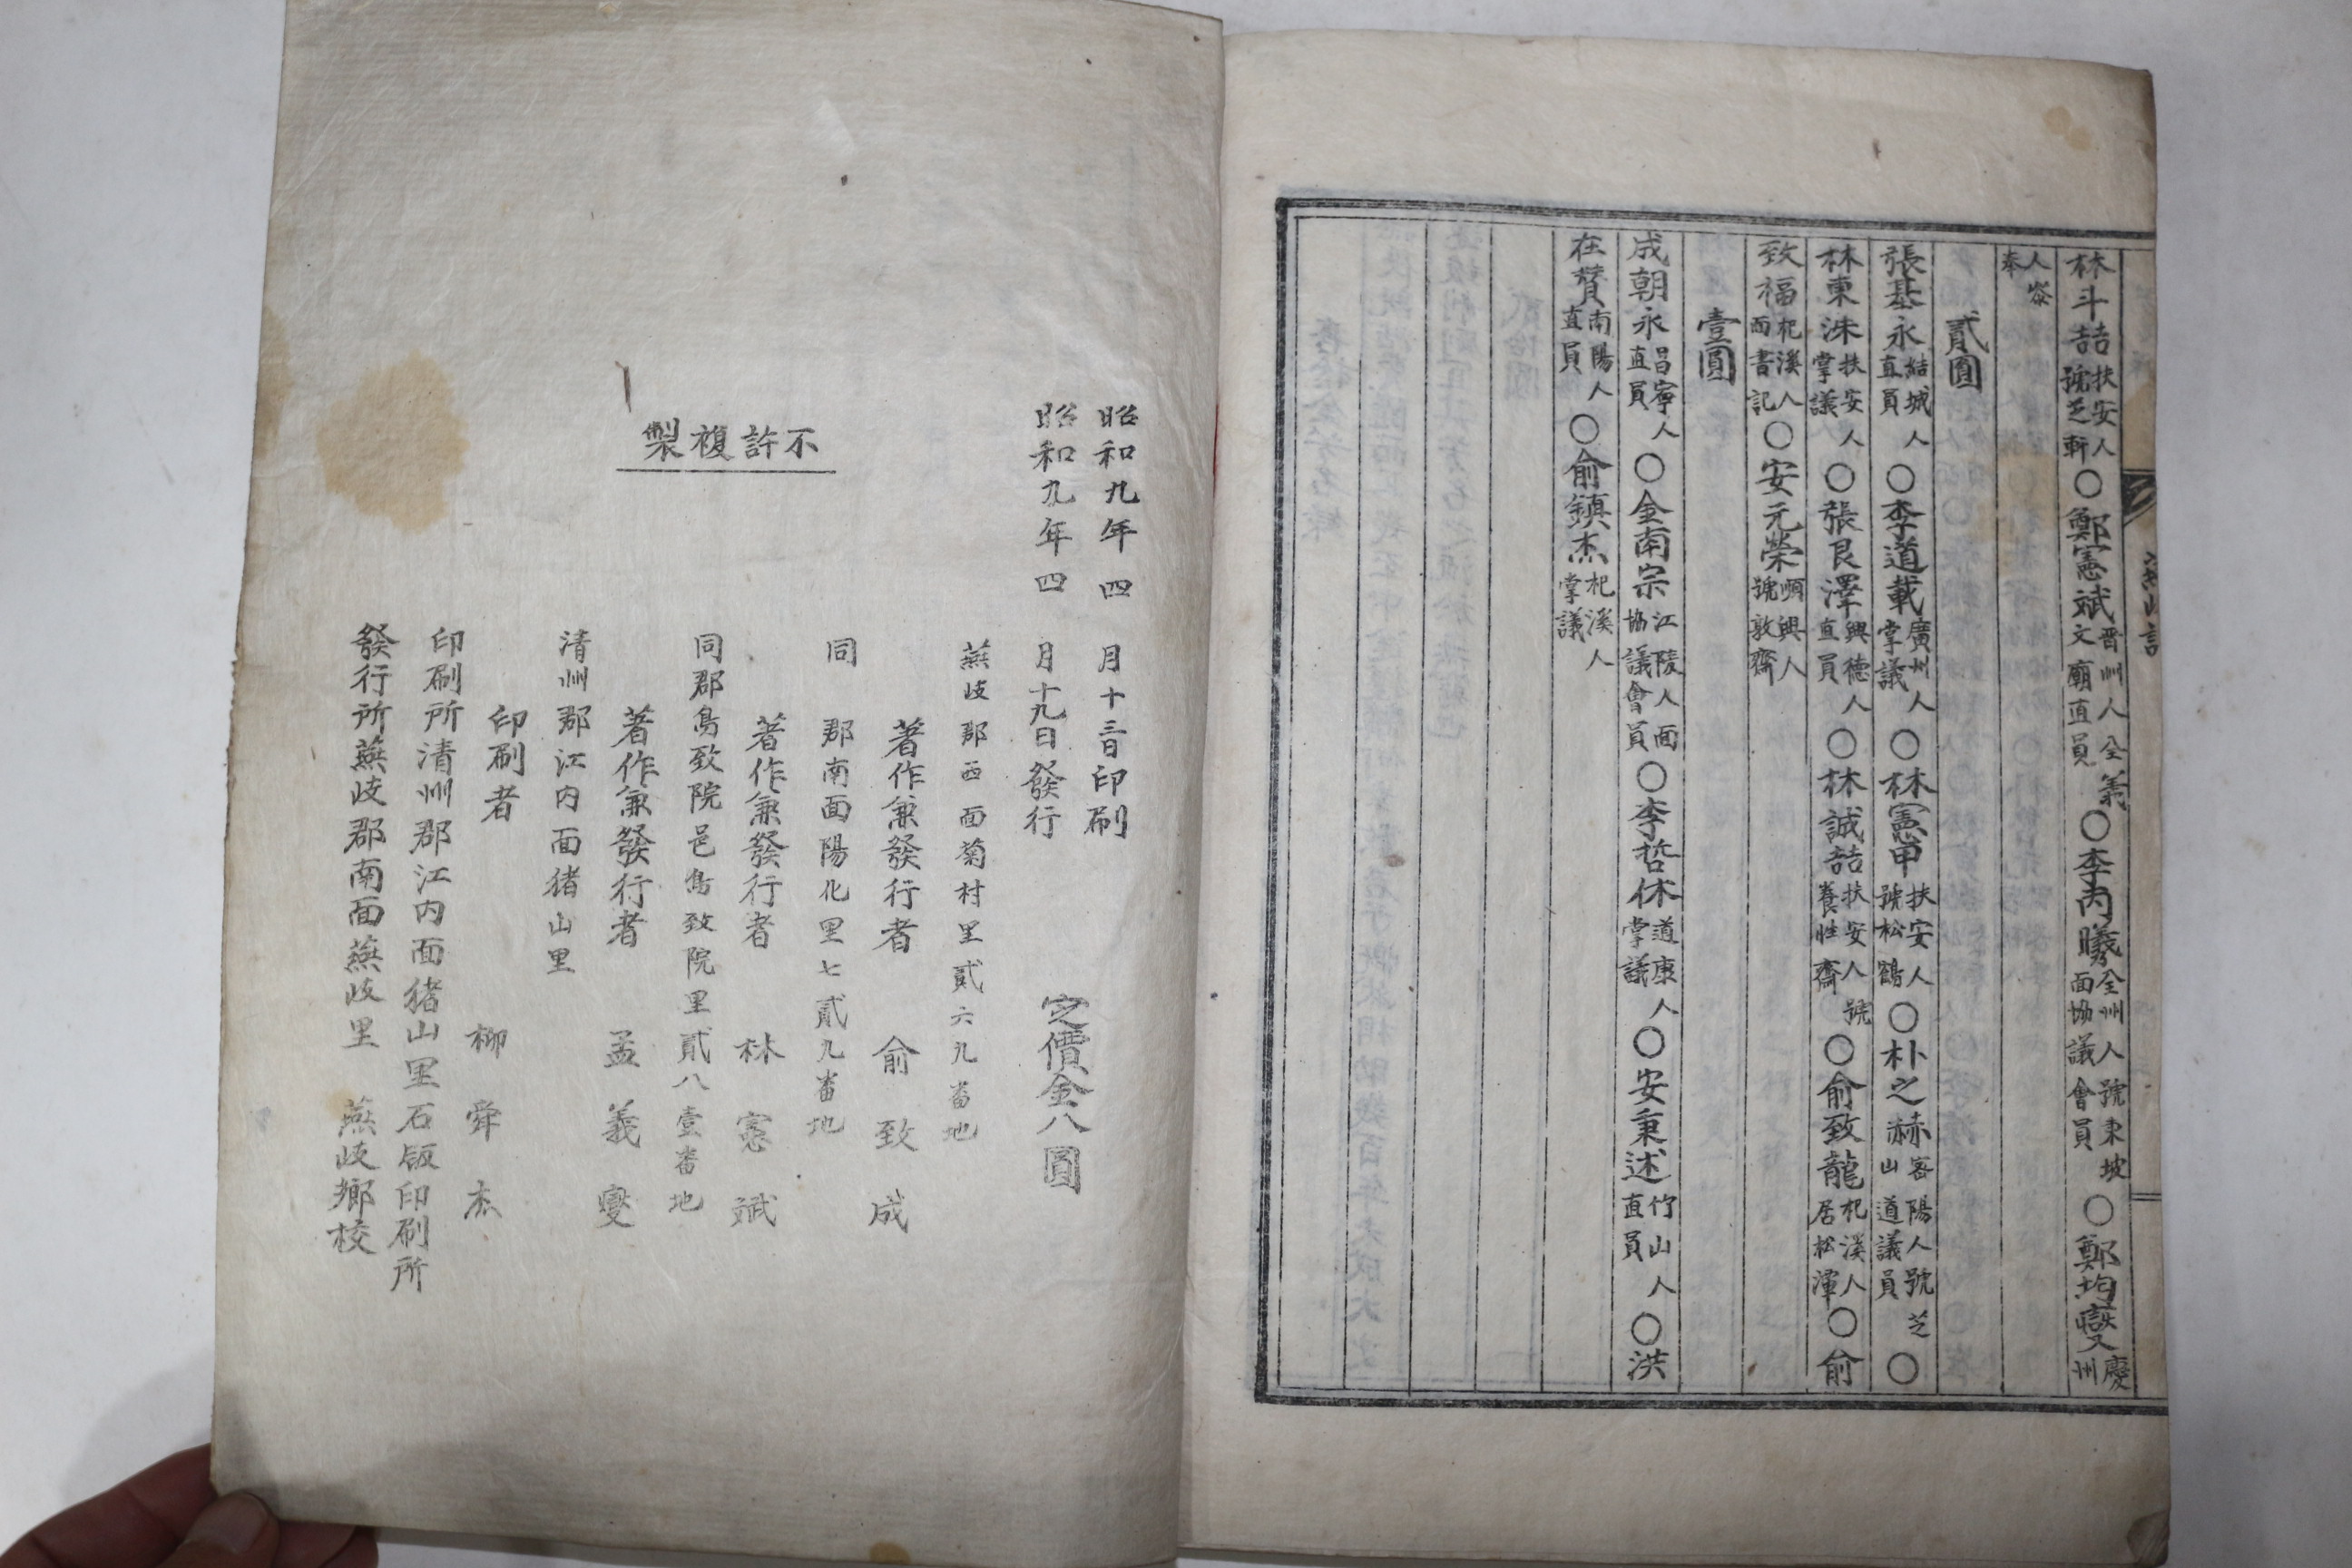 林斗喆扶安人號芝軒〇鄭憲斌晋州人仝義文廟直員〇李丙曦全州人號東坡面協議會員〇鄭均燮慶州
人參奉
貳圓
張基永結城人直員〇李道載廣州人掌議〇林憲甲扶安人號松鶴〇朴之赫密陽人號芝山道議員〇
林東洙扶安人掌議〇張艮澤興德人直員〇林誠喆扶安人號養性齋〇俞致龍杞溪人居松潭〇俞
致福杞溪人面書記〇安元榮順興人號敦齋
壹圓
成朝永昌寧人直員〇金南宗江陵人面協議會員〇李哲休道康人掌議〇安秉述竹山人直員〇洪
在賛南陽人直員〇俞鎮杰杞溪人掌議
昭和九年四月十三日印刷
昭和九年四月十九日發行
定價金八圓
燕岐郡西面菊村里貳六九番地
著作兼發行者 俞致成
同郡南面陽化里七貳九番地
不許複製
著作兼發行者 林憲斌
同郡鳥致院邑鳥致院里貳八壹番地
著作兼發行者 孟義燮
清州郡江内面猪山里
印刷者 柳舜杰
印刷所清州郡江内面猪山里石版印刷所
發行所燕岐郡南面燕岐里 燕岐鄉校